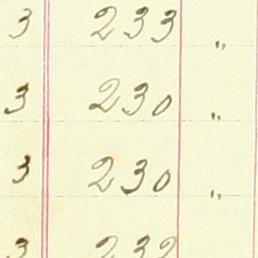 3 233 "
3 230 "
3 230 "
3 232